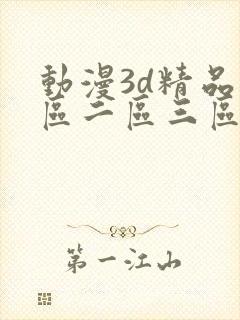 動漫3d精品
區二區三區
第一江山